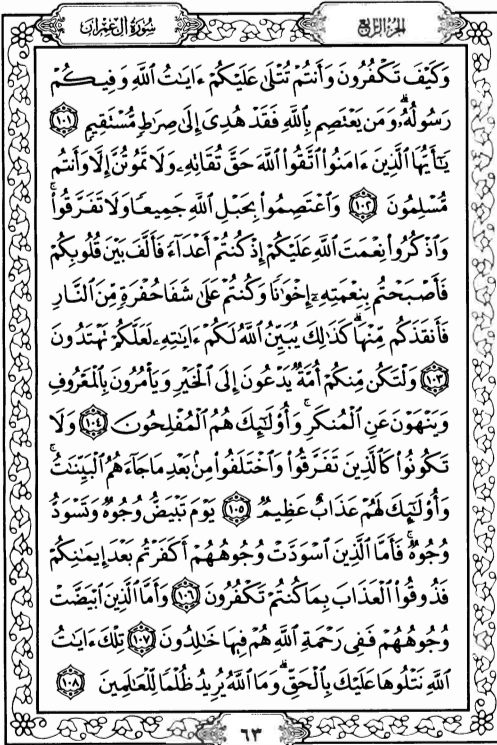 سُورَةُ آلِ عِمْرَان
الجُزْءُ الرَّابِعُ
وَكَيْفَ تَكْفُرُونَ وَأَنتُمْ تُتْلَىٰ عَلَيْكُمْ ءَايَٰتُ ٱللَّهِ وَفِيكُمْ
رَسُولُهُۥ ۗ وَمَن يَعْتَصِم بِٱللَّهِ فَقَدْ هُدِىَ إِلَىٰ صِرَٰطٍ مُّسْتَقِيمٍ ١٠١
يَٰٓأَيُّهَا ٱلَّذِينَ ءَامَنُوا۟ ٱتَّقُوا۟ ٱللَّهَ حَقَّ تُقَاتِهِۦ وَلَا تَمُوتُنَّ إِلَّا وَأَنتُم
مُّسْلِمُونَ ١٠٢ وَٱعْتَصِمُوا۟ بِحَبْلِ ٱللَّهِ جَمِيعًا وَلَا تَفَرَّقُوا۟ ۚ
وَٱذْكُرُوا۟ نِعْمَتَ ٱللَّهِ عَلَيْكُمْ إِذْ كُنتُمْ أَعْدَآءً فَأَلَّفَ بَيْنَ قُلُوبِكُمْ
فَأَصْبَحْتُم بِنِعْمَتِهِۦٓ إِخْوَٰنًا وَكُنتُمْ عَلَىٰ شَفَا حُفْرَةٍ مِّنَ ٱلنَّارِ
فَأَنقَذَكُم مِّنْهَا ۗ كَذَٰلِكَ يُبَيِّنُ ٱللَّهُ لَكُمْ ءَايَٰتِهِۦ لَعَلَّكُمْ تَهْتَدُونَ
١٠٣ وَلْتَكُن مِّنكُمْ أُمَّةٌ يَدْعُونَ إِلَى ٱلْخَيْرِ وَيَأْمُرُونَ بِٱلْمَعْرُوفِ
وَيَنْهَوْنَ عَنِ ٱلْمُنكَرِ ۚ وَأُو۟لَٰٓئِكَ هُمُ ٱلْمُفْلِحُونَ ١٠٤ وَلَا
تَكُونُوا۟ كَٱلَّذِينَ تَفَرَّقُوا۟ وَٱخْتَلَفُوا۟ مِنۢ بَعْدِ مَا جَآءَهُمُ ٱلْبَيِّنَٰتُ ۚ
وَأُو۟لَٰٓئِكَ لَهُمْ عَذَابٌ عَظِيمٌ ١٠٥ يَوْمَ تَبْيَضُّ وُجُوهٌ وَتَسْوَدُّ
وُجُوهٌ ۚ فَأَمَّا ٱلَّذِينَ ٱسْوَدَّتْ وُجُوهُهُمْ أَكَفَرْتُم بَعْدَ إِيمَٰنِكُمْ
فَذُوقُوا۟ ٱلْعَذَابَ بِمَا كُنتُمْ تَكْفُرُونَ ١٠٦ وَأَمَّا ٱلَّذِينَ ٱبْيَضَّتْ
وُجُوهُهُمْ فَفِى رَحْمَةِ ٱللَّهِ هُمْ فِيهَا خَٰلِدُونَ ١٠٧ تِلْكَ ءَايَٰتُ
ٱللَّهِ نَتْلُوهَا عَلَيْكَ بِٱلْحَقِّ ۗ وَمَا ٱللَّهُ يُرِيدُ ظُلْمًا لِّلْعَٰلَمِينَ ١٠٨
٦٣